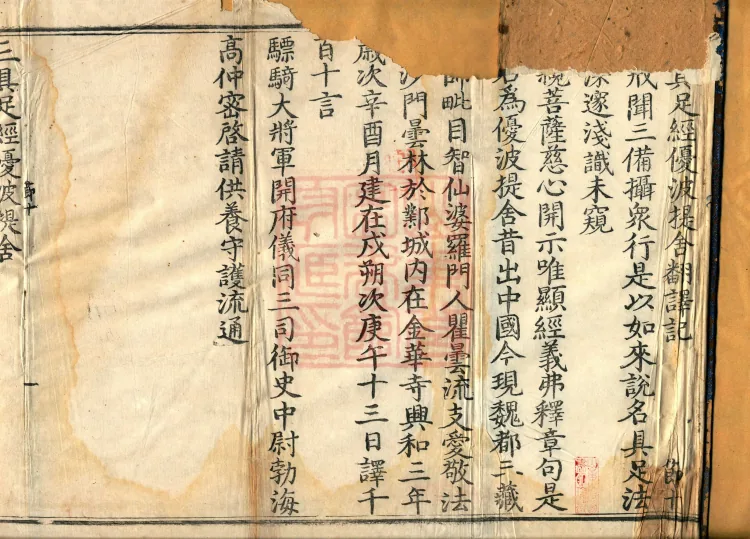 具足經優波提舍翻譯記 節十
戒聞三備攝衆行是以如來說名具足法
深邃淺識未窺
親菩薩慈心開示唯顯經義弗釋章句是
名為優波提舍昔出中國今現魏都三藏
師毗目智仙婆羅門人瞿曇流支愛敬法
沙門曇林於鄴城內在金華寺興和三年
歲次辛酉月建在戌朔次庚午十三日譯千
百十言
驃騎大將軍開府儀同三司御史中尉勃海
高仲密啓請供養守護流通
節十 一
三具足經優波提舍